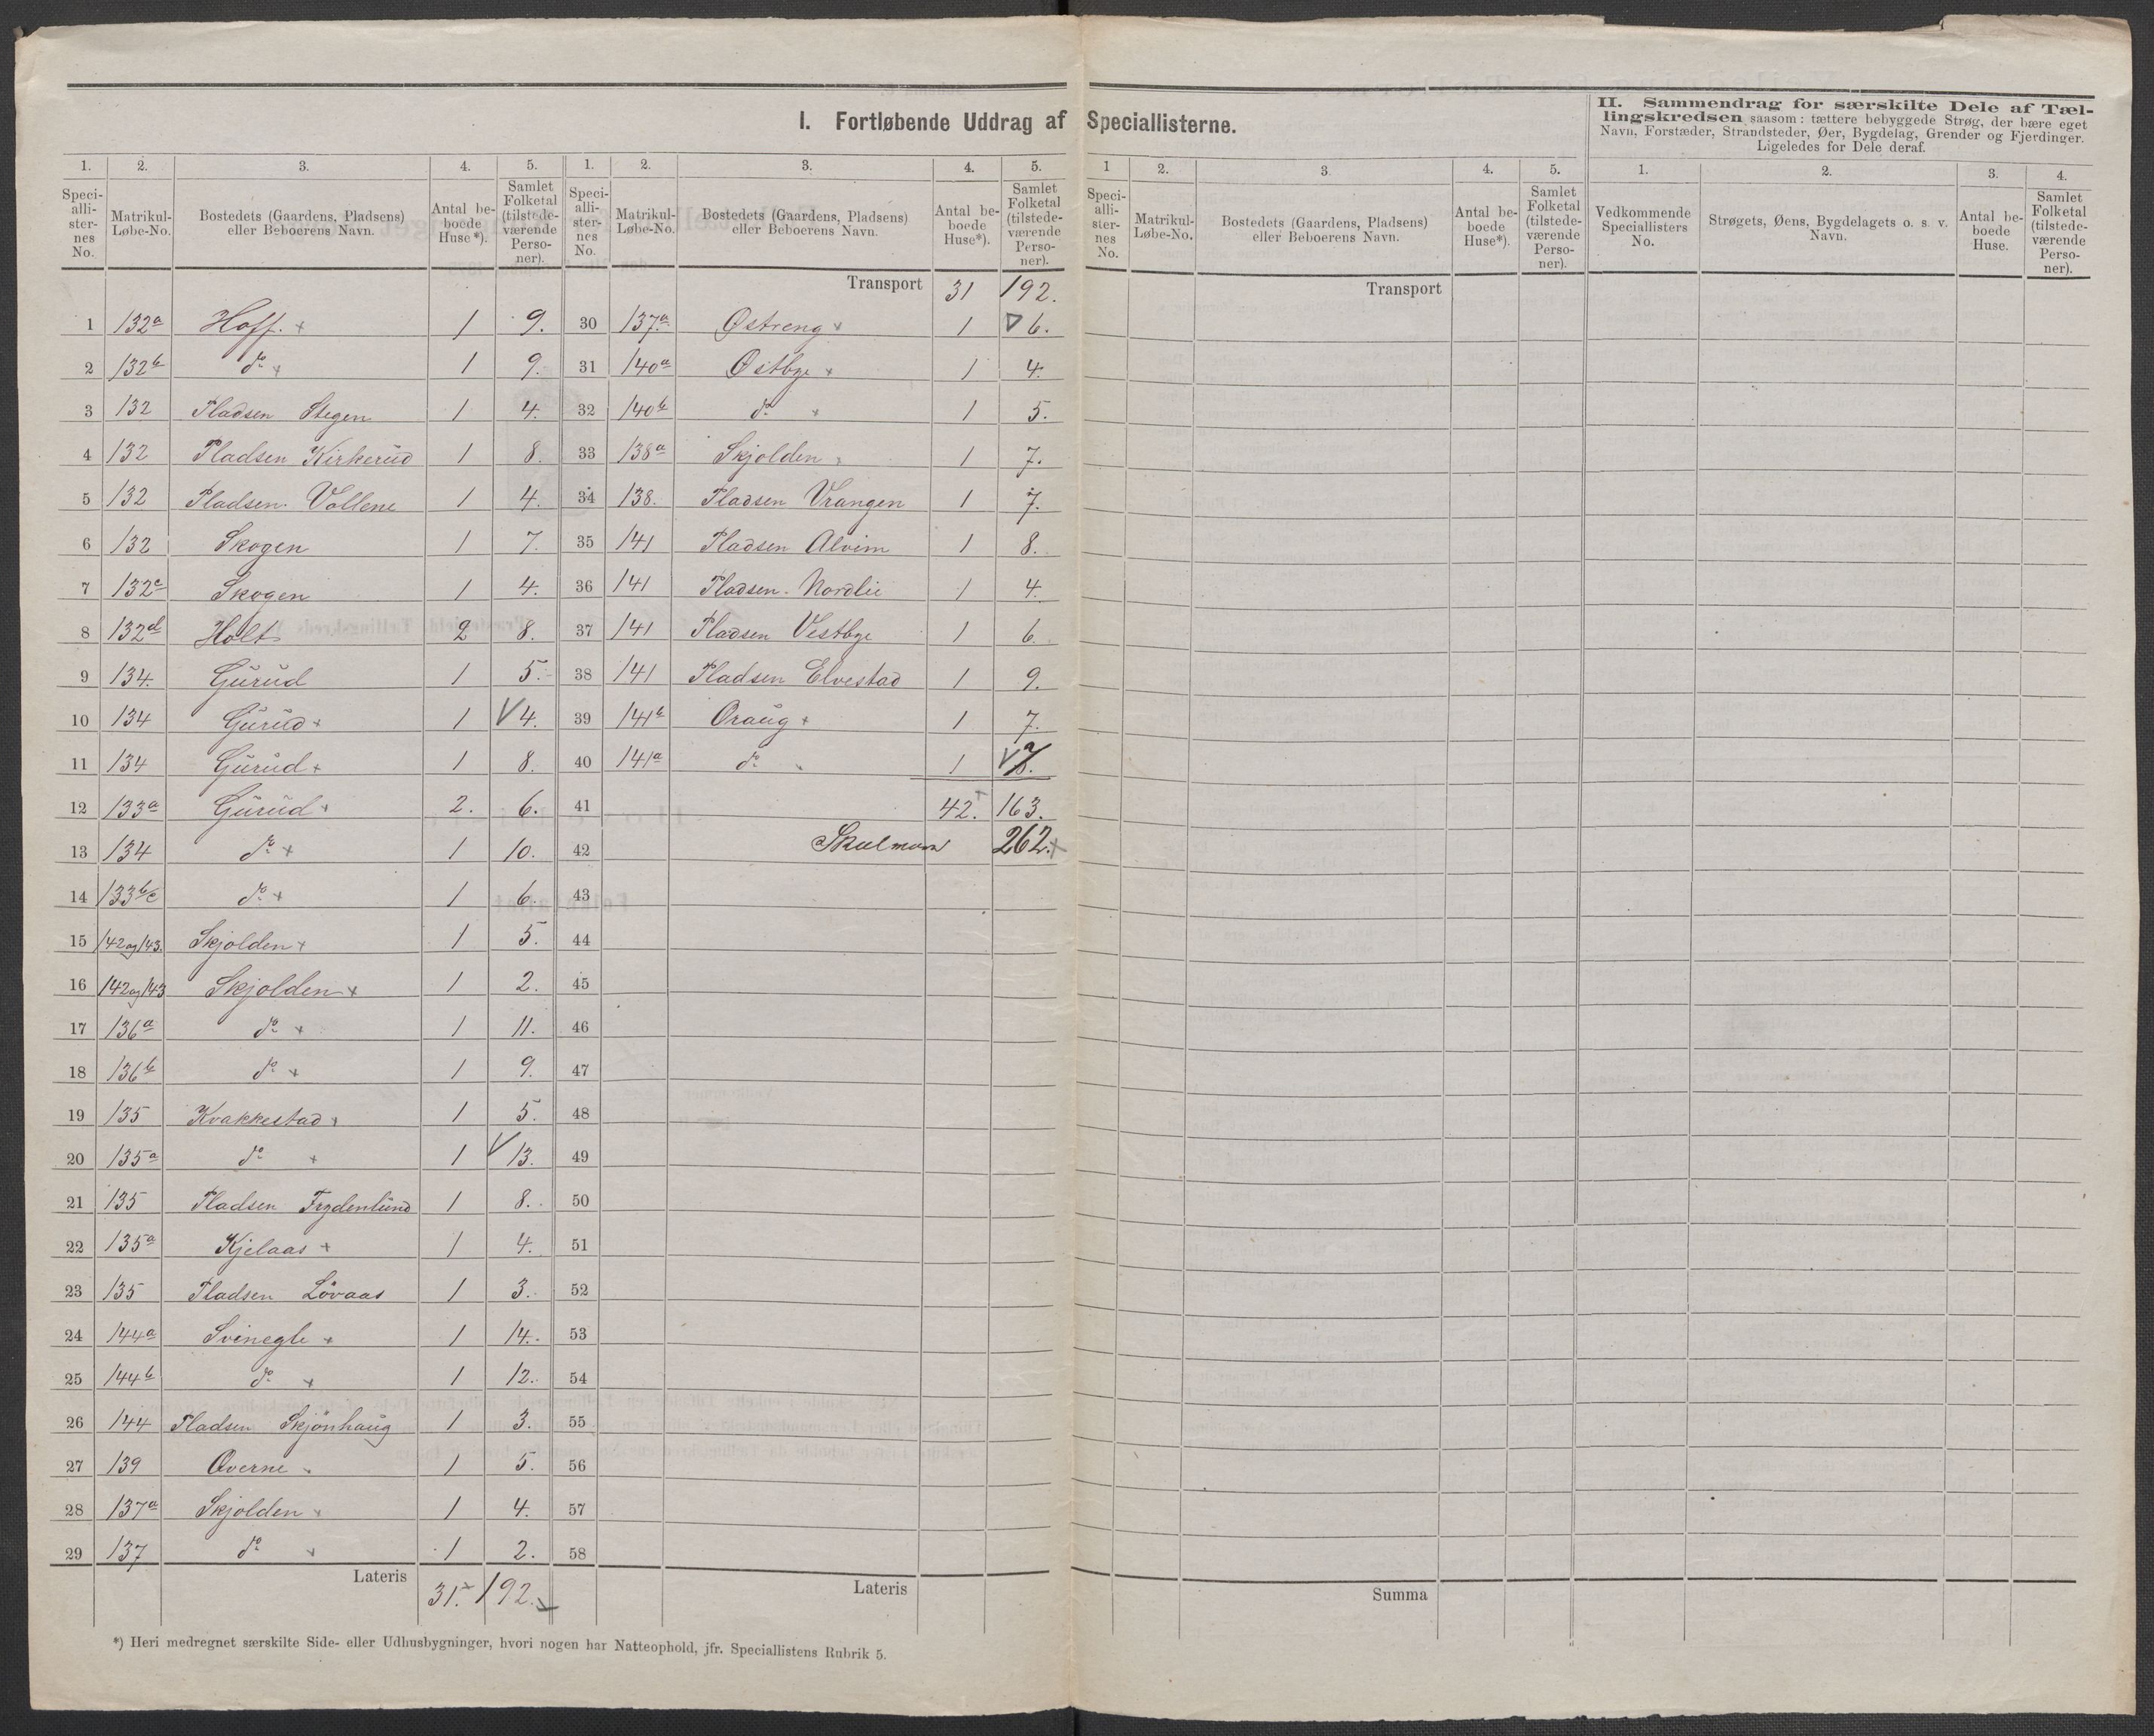 I. Fortløbende Uddrag af Speciallisterne.
II. Sammendrag for særskilte Dele af Tæl-
lingskredsen saasom: tættere bebyggede Strøg, der bære eget
Navn, Forstæder, Strandsteder, Øer, Bygdelag, Grender og Fjerdinger.
Ligeledes for Dele deraf.
1. 2. 3. 4. 5. 1. 2. 3. 4. 5. 1 2. 3. 4. 5. 1. 2. 3. 4.
Speci-alli-ster-nes No. Matrikul-Løbe-No. Bostedets (Gaardens, Pladsens) eller Beboerens Navn. Antal be-boede Huse*). Samlet Folketal (tilstede-værende Perso-ner).
Speci-alli-ster-nes No. Matrikul-Løbe-No. Bostedets (Gaardens, Pladsens) eller Beboerens Navn. Antal be-boede Huse*). Samlet Folketal (tilstede-værende Perso-ner).
Speci-alli-ster-nes No. Matrikul-Løbe-No. Bostedets (Gaardens, Pladsens) eller Beboerens Navn. Antal be-boede Huse*). Samlet Folketal (tilstede-værende Perso-ner).
Vedkommende Speciallisters No. Strøgets, Øens, Bygdelagets o. s. v. Navn. Antal be-boede Huse. Samlet Folketal (tilstede-værende Perso-ner).
1 132a Hoff. + 1 9.
2 132b do + 1 9.
3 132 Pladsen Stegen 1 4.
4 132 Pladsen Kirkerud 1 8.
5 132 Pladsen Vollene 1 4.
6 132 Skogen 1 7.
7 132c Skogen 1 4.
8 132d Holt 2 8.
9 134. Gurud 1 5.
10 134 Gurud + 1 V 4.
11 134 Gurud + 1 8.
12 133a Gurud + 2. 6.
13 134 do + 1 10.
14 133b/c do + 1 6.
15 142og143. Skjolden + 1 5.
16 142og143 Skjolden + 1 2.
17 136a do + 1 11.
18 136b do + 1 9.
19 135 Kvakkestad + 1 5.
20 135a do + 1 V 13.
21 135 Pladsen Frydenlund 1 8.
22 135a Kjelaas + 1 4.
23 135 Pladsen Lövaas 1 3.
24 144a Svinegle + 1 14.
25 144b do + 1 12.
26 144 Pladsen Skjönhaug 1 3.
27 139 Overne 1 5.
28 137a Skjolden + 1 4.
29 137 do 1 2.
Lateris 31. 192.
Transport 31 192.
30 137a. Østreng 1 6.
31 140a Østbye + 1 4.
32 140b do + 1 5.
33 138a Skjolden 1 7.
34 138. Pladsen Vrangen 1 7.
35 141 Pladsen Alvim 1 8.
36 141 Pladsen Nordlie 1 4.
37 141 Pladsen Vestbye 1 6.
38 141 Pladsen Elvestad 1 9.
39 141b Oraug + 1 7.
40 141a do 1 V
41 42. 163.
42 262.
43
44
45
46
47
48
49
50
51
52
53
54
55
56
57
58
Lateris
Transport
Summa
*) Heri medregnet særskilte Side- eller Udhusbygninger, hvori nogen har Natteophold, jfr. Speciallistens Rubrik 5.